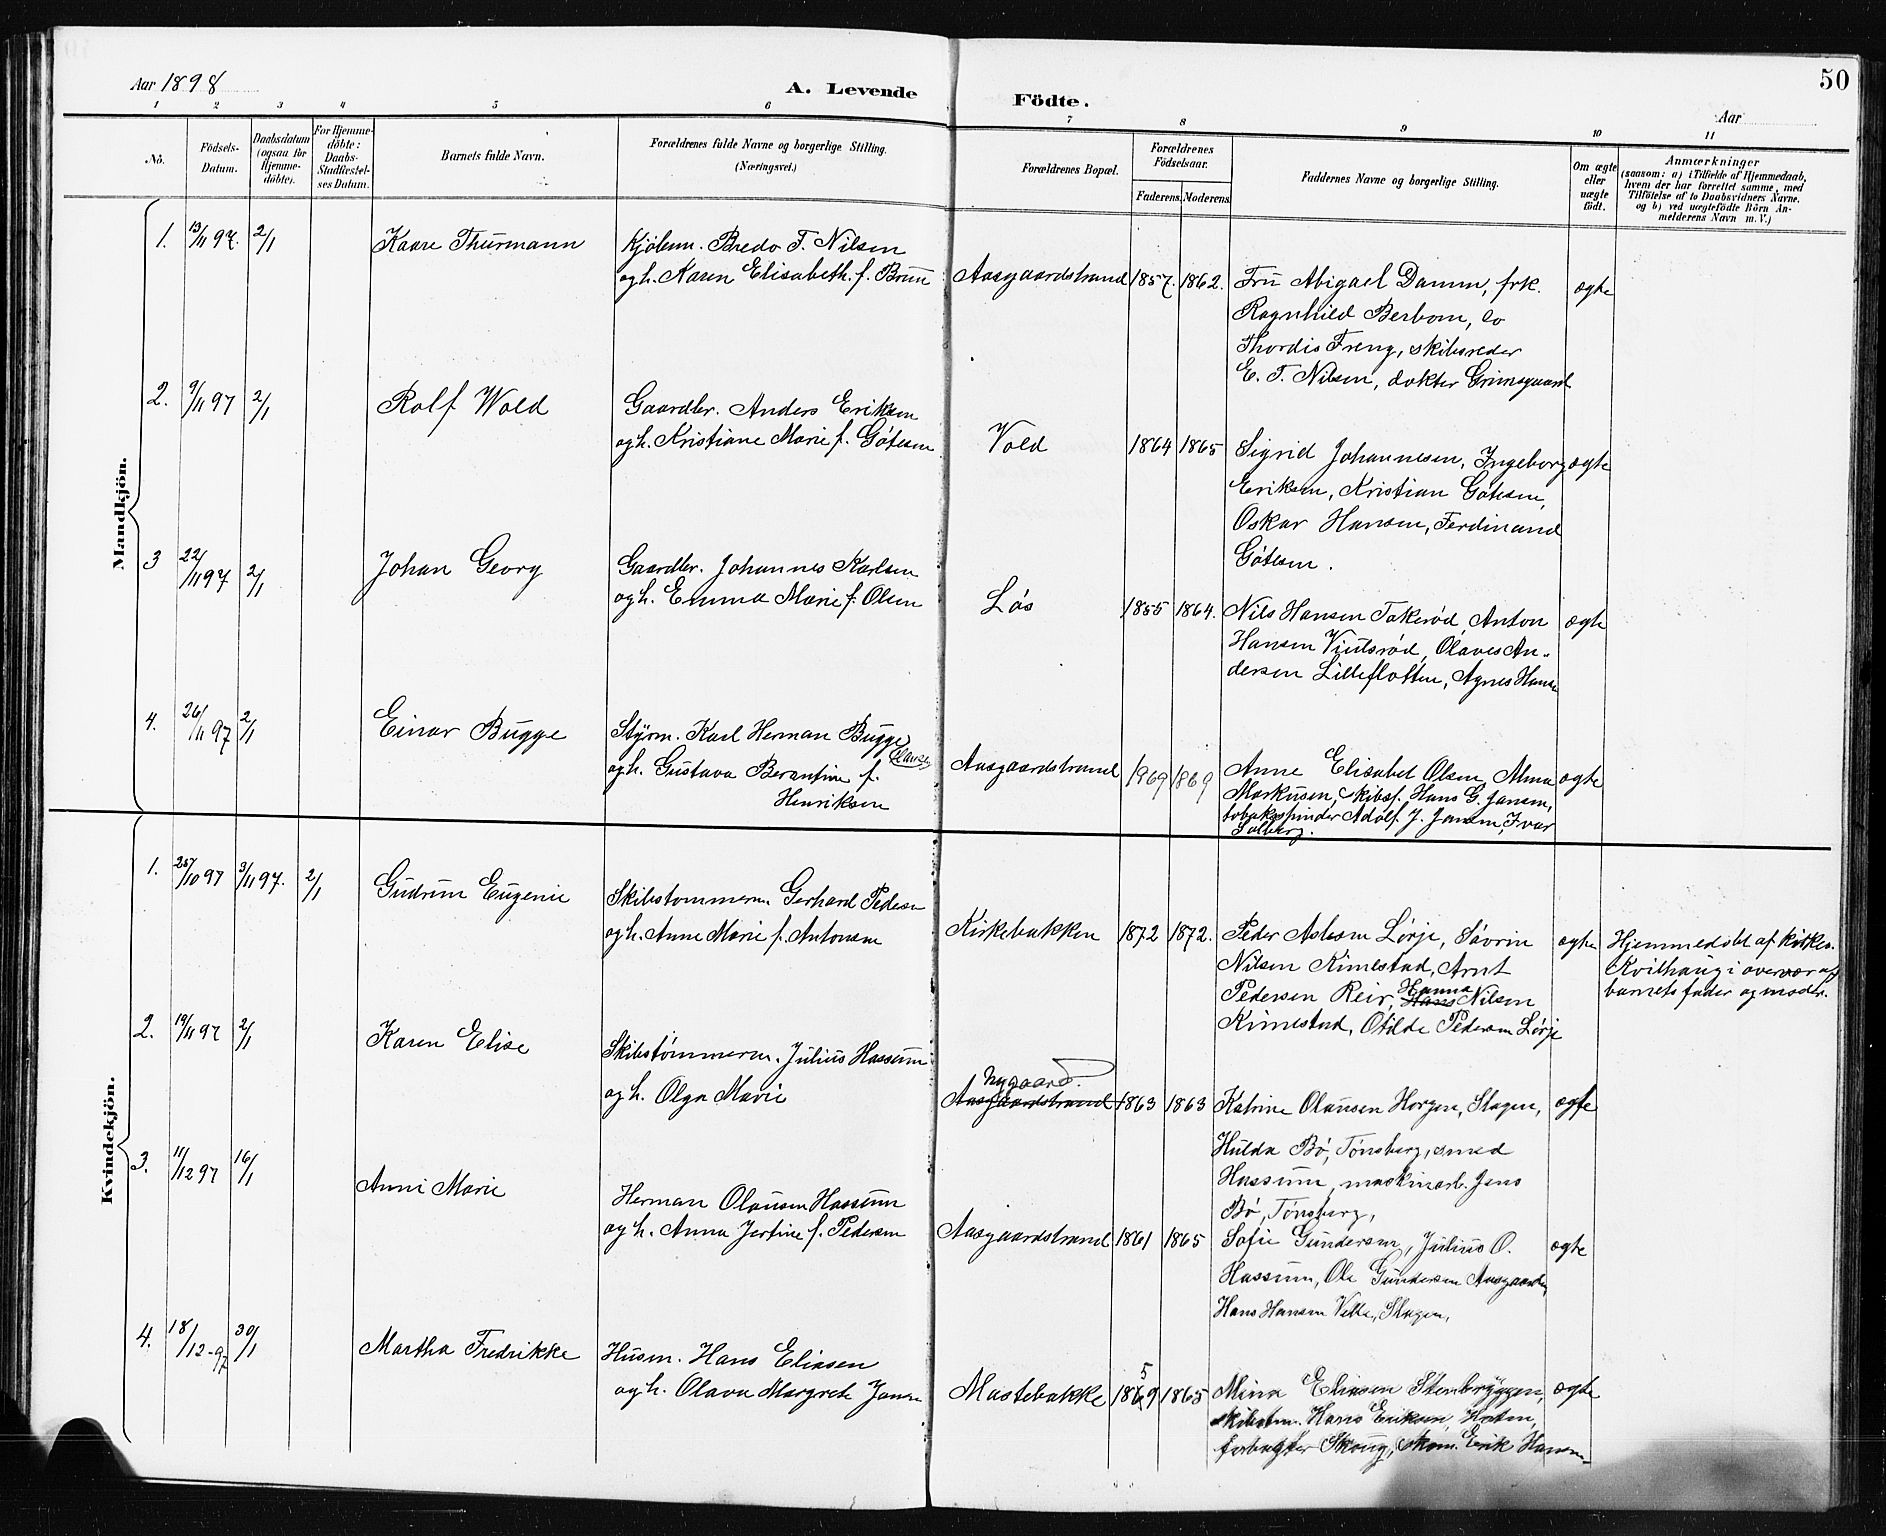 50
Aar 1898
A. Levende Födte.
Aar
1 2 3 4 5 6 7 8 9 10 11
No.
Födsels-
Datum.
Daabsdatum
(ogsaa for
Hjemme-
döbte).
For Hjemme-
döbte:
Daabs-
Stadfæstel-
ses Datum.
Barnets fulde Navn.
Forældrenes fulde Navne og borgerlige Stilling.
(Næringsvei.)
Forældrenes Bopæl.
Forældrenes
Födselsaar.
Faderens. Moderens.
Faddernes Navne og borgerlige Stilling.
Om ægte
eller
uægte
födt.
Anmærkninger
(saasom: a) i Tilfælde af Hjemmedaab,
hvem der har forrettet samme, med
Tilföielse af to Daabsvidners Navne,
og b) ved uægtefödte Börn An-
melderens Navn m. V.)
Mandkjön.
1. 13/11 97. 2/1 Kaare Thurmann
Kjøbm. Bredo T. Nilsen
og h. Karen Elisabeth f. Bruu
Aasgaardstrand 1857. 1862.
Fru Abigael Damm, frk.
Ragnhild Berbom, do
Thordis Freng, skibsreder
E. T. Nilsen, doktor Grimsgaard
ægte
2. 9/11 97 2/1 Rolf Wold
Gaardbr. Anders Eriksen
og h. Kristiane Marie f. Gøtesen
Vold 1864 1865
Sigrid Johannesen, Ingeborg
Eriksen, Kristian Gøtesen,
Oskar Hansen, Ferdinand
Gøtesen.
ægte
3 22/11 97 2/1 Johan Georg
Gaardbr. Johannes Karlsen
og h. Emma Marie f. Olsen
Løs 1855 1864.
Nils Hansen Takerød, Anton
Hansen Vintsrød, Olaves An-
dersen Lilleflotten, Agnes Hansen
ægte
4. 26/11 97 2/1 Einar Bugge
Styrm. Karl Herman Bugge
Olausen
og h. Gustava Berantine f.
Henriksen
Aasgaardstrand 1969 1869
Anne Elisabet Olsen, Alma
Markusen, skibsf. Hans G. Jansen,
tobaksspinder Adolf J. Jansen, Ivar
Solberg.
ægte
Kvindekjön.
1. 25/10 97 3/11 97. 2/1 Gudrun Eugenie
Skibstømmerm. Gerhard Pedersen
og h. Anne Marie f. Antonsen
Kirkebakken 1872 1872.
Peder Aslesen Lørje, Søvrin
Nilsen Kimestad, Arnt
Pedersen Reir, Hanna Nilsen
Kimestad, Otilde Pedersen Lørje
ægte
Hjemmedøbt af kirkes.
Kvilhaug i overvær af
barnets fader og moder.
2. 19/11 97 2/1 Karen Elise
Skibstømmerm. Julius Hassum
og h. Olga Marie
Nygaard.
Aasgaardstrand 1863 1863
Katrine Olausen Horgen, Slagen,
Hulda Bø, Tønsberg, smed
Hassum, maskinarb. Jens
Bø, Tønsberg,
ægte
3. 11/12 97 16/1 Anni Marie
Herman Olausen Hassum
og h. Anna Jertine f. Pedersen
Aasgaardstrand 1861 1865
Sofie Gundersen, Julius O.
Hassum, Ole Gundersen Aasgaarden,
Hans Hansen Velle, Slagen,
ægte
4. 18/12-97 30/1 Martha Fredrikke
Husm. Hans Eliasen
og h. Olava Margrete Jansen
Mastebakke 1859 1865
Mina Eliasen Stenbryggen,
skibstm. Hans Eriksen, Holten,
forvalter Skoug, skom. Erik Hansen
ægte